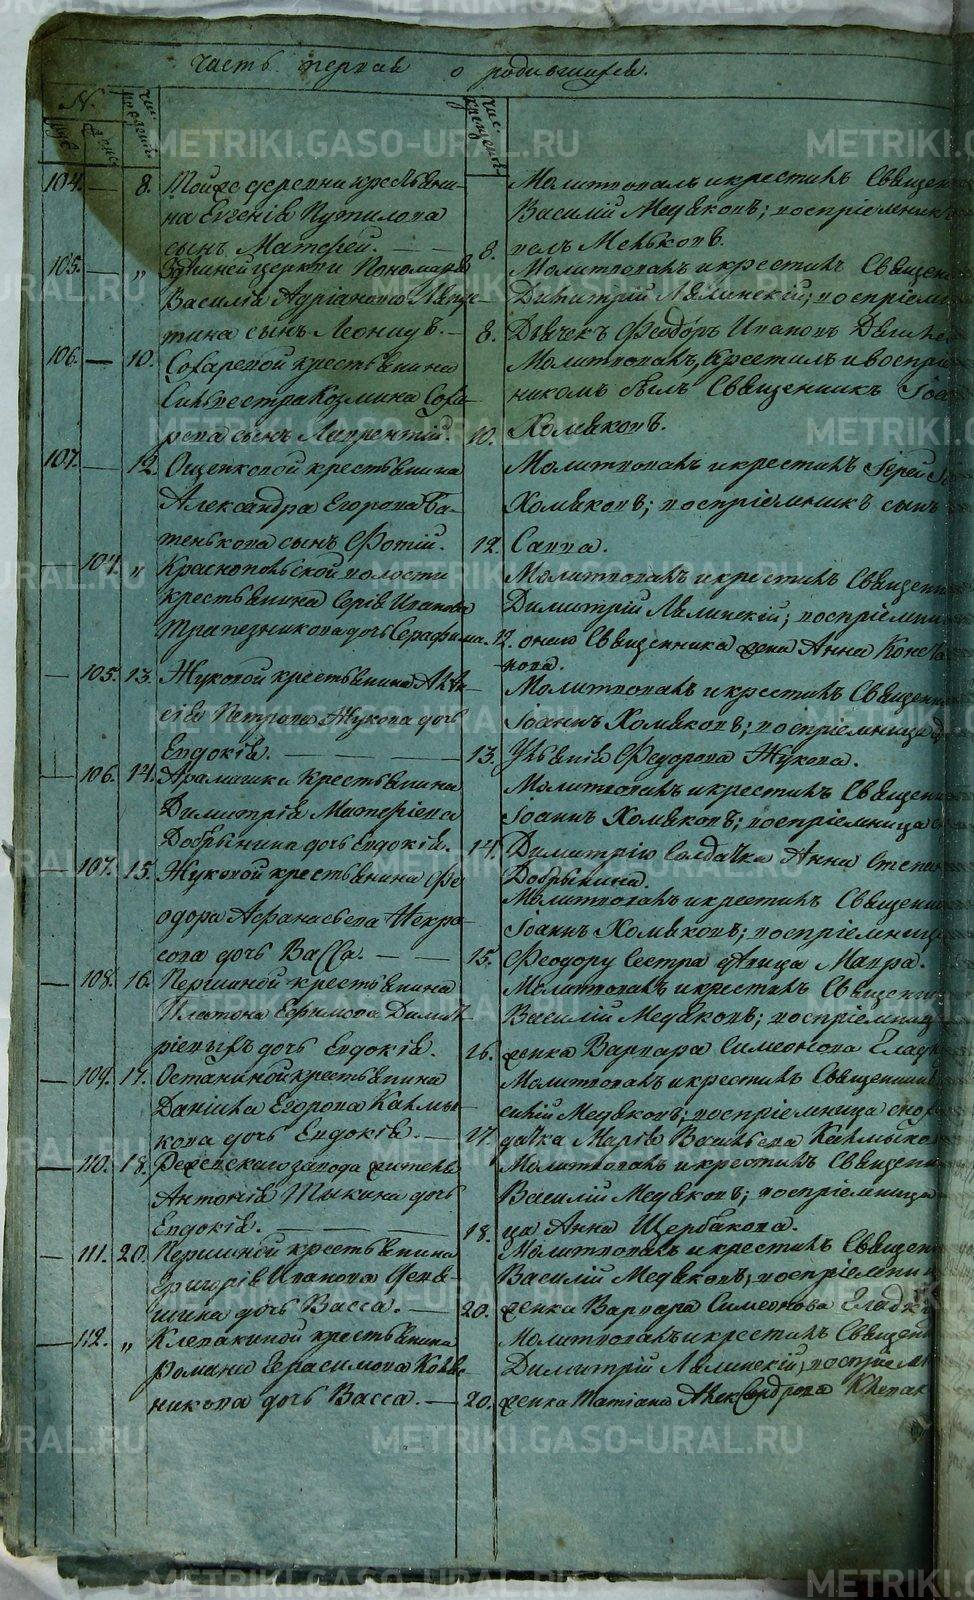 Часть первая о родившихся.
№.
муж. женс. Чис. рожден. Чис. крещен.
104. — 8. Тойже деревни крестьяни-
на Евгенія Путилова
сынъ Матфей. — —
8.
Молитвовалъ и крестилъ Священ
Василій Медяковъ; воспріемник
105. — „ Здешней церкви Пономаря
Василія Адріанова Лапу-
тина сынъ Леонидъ. —
8.
Молитвовалъ и крестилъ Священ
Димитрій Лялинскій; воспріем
Дьячекъ Феодоръ Ивановъ
106. — 10. Сохаревой крестьянина
Сильвестра Козмина Соха-
рева сынъ Лаврентій.
10.
Молитвовалъ, Крестилъ и воспріе
никомъ былъ Священникъ Іоан
Хомяковъ.
107. — 12. Ощепковой крестьянина
Александра Егорова Ба-
тенькова сынъ Фотій.
12.
Молитвовалъ и крестилъ Іерей Іо
Хомяковъ; воспріемникъ сынъ
Савва.
104. „ Краснопольской волости
крестьянина Сергія Иванова
Трапезникова дочь Серафима.
12.
Молитвовалъ и крестилъ Священн
Димитрій Лялинскій; воспріемни
онаго Священника жена Анна
— 105. 13. Жуковой крестьянина Алек-
сія Петрова Жукова дочь
Евдокія. —
13.
Молитвовалъ и крестилъ Священн
Іоаннъ Хомяковъ; воспріемница
Ульянія Федорова Жукова.
— 106. 14. Арамашки крестьянина
Димитрія Матфіева
Добрынина дочь Евдокія.
14.
Молитвовалъ и крестилъ Священн
Іоаннъ Хомяковъ; воспріемница
Димитрію Солдатка Анна Степан
Добрынина.
— 107. 15. Жуковой крестьянина Фе-
одора Афанасьева Некра-
сова дочь Васса. — —
15.
Молитвовалъ и крестилъ Священн
Іоаннъ Хомяковъ; воспріемница
Феодору Сестра дѣвица Мавра.
— 108. 16. Першиной крестьянина
Платона Ефимова Димит-
ріевыхъ дочь Евдокія.
16.
Молитвовалъ и крестилъ Священни
Василій Медяковъ; воспріемниц
женка Варвара Симеонова Гладк
— 109. 17. Останиной крестьянина
Даніила Егорова Калмы-
кова дочь Евдокія. —
17.
Молитвовалъ и крестилъ Священник
силій Медяковъ; воспріемница
Марія Васильева Калмыко
— 110. 18. Режевскаго завода житель
Антонія Тыкина дочь
Евдокія. —
18.
Молитвовалъ и крестилъ Священн
Василій Медяковъ; воспріемница
ца Анна Щербакова.
— 111. 20. Першиной крестьянина
Григорія Иванова
шина дочь Васса. —
20.
Молитвовалъ и крестилъ Священ
Василій Медяковъ; воспріемни
женка Варвара Симеонова Гладко
— 112. „ Клевакиной крестьянина
Романа Герасимова
никова дочь Васса. —
20.
Молитвовалъ и крестилъ Священ
Димитрій Лялинскій; воспріем
женка Татіана Александрова Клевак
METRIKI.GASO-URAL.RU